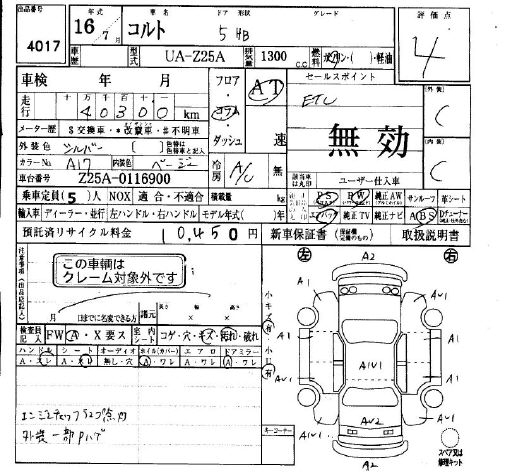 出品番号
4017
年式 車名 ドア 形状 グレード
16/7月 コルト 5HB
車歴 型式 UA-Z25A 排気量 1300 c.c. 燃料 ガソリン・( )・軽油
評価点
4
車検 年 月
走行 十万千百十
40300 km
メーター歴 $交換車・*改竄車・#不明車
外装色 シルバー
カラーNo A17 内装色 ベージュ
車台番号 Z25A-0116900
フロア・コラム・ダッシュ
AT 速
冷房 A/C 無
セールスポイント
ETC
無効
ユーザー仕入車
(外装) C
(内装) C
乗車定員(5)人 NOX 適合・不適合 積載量 kg
PS PW 純正AW サンルーフ 革シート
輸入車 ディーラー・並行 左ハンドル・右ハンドル モデル年式( )年
エアバック 純正TV 純正ナビ ABS
預託済リサイクル料金 10,450円
新車保証書 取扱説明書
この車輌は
クレーム対象外です
月 日までに名変できる方
諸元 長さ 幅 高さ
x x
検査員記入 FW A・X 要ス 室内シート コゲ・穴・キズ・汚れ・破れ
ハンドル シート オーディオ ホイル(カバー) エアロ ドアミラー
A・スレ A・スレ 無し・穴 A・ワレ A・ワレ A・ワレ
エンジンチェックランプ点灯
外装一部Pハゲ
小キズ 有
小凹 有
左 右
A2
AU1
A1
A1
A1
A1
AU1
AU1
AU1
AU1
AU2
AU1
A2
スペア又は
修理キット